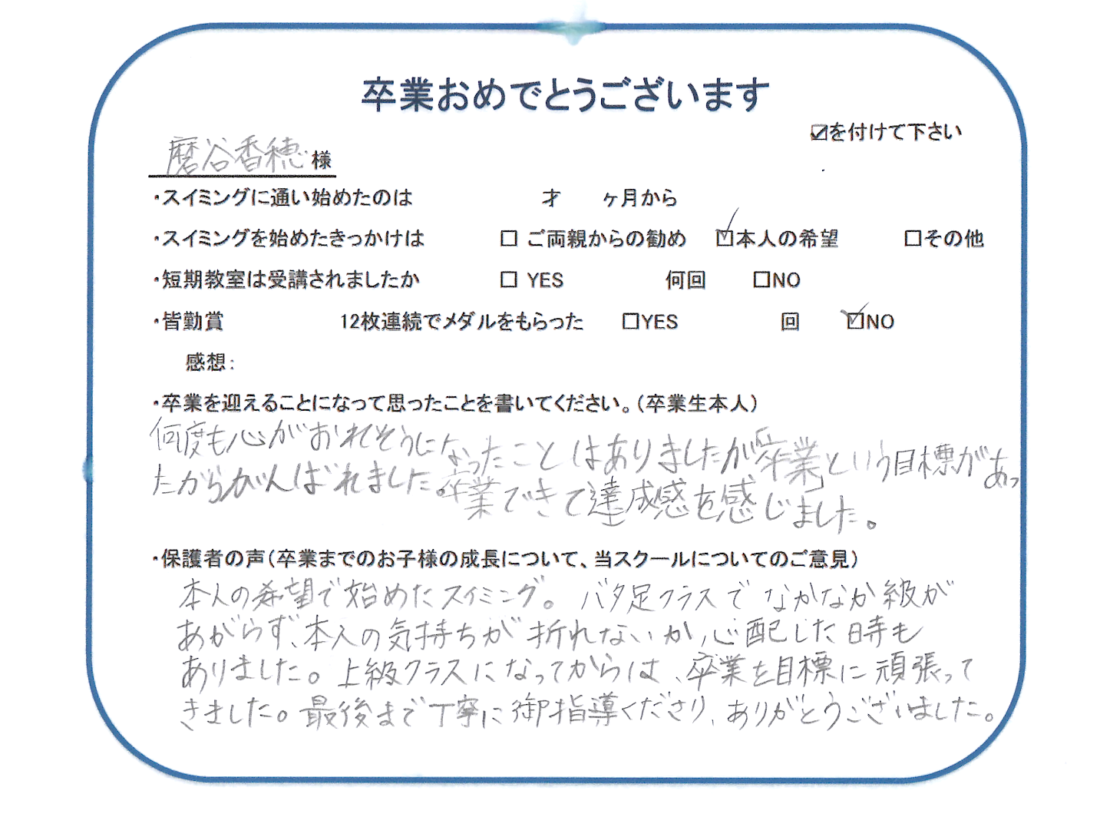 卒業おめでとうございます
☑を付けて下さい
磨谷香穂 様
・スイミングに通い始めたのは 才 ヶ月から
・スイミングを始めたきっかけは □ ご両親からの勧め ☑本人の希望 □その他
・短期教室は受講されましたか □ YES 何回 □NO
・皆勤賞 12枚連続でメダルをもらった □YES 回 ☑NO
感想：
・卒業を迎えることになって思ったことを書いてください。（卒業生本人）
何度も心がおれそうになったことはありましたが「卒業」という目標があっ
たからがんばれました。卒業できて達成感を感じました。
・保護者の声（卒業までのお子様の成長について、当スクールについてのご意見）
本人の希望で始めたスイミング。バタ足クラスでなかなか級が
あがらず、本人の気持ちが折れないか、心配した時も
ありました。上級クラスになってからは、卒業を目標に頑張って
きました。最後まで丁寧に御指導くださり、ありがとうございました。